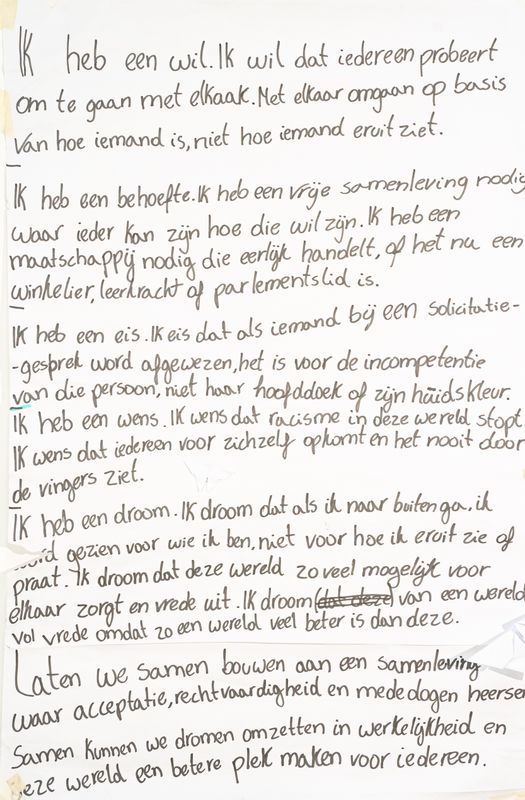 Ik heb een wil. Ik wil dat iedereen probeert
om te gaan met elkaak. Met elkaar omgaan op basis
van hoe iemand is, niet hoe iemand eruit ziet.
Ik heb een behoefte. Ik heb een vrije samenleving nodig
waar ieder kan zijn hoe die wil zijn. Ik heb een
maatschappij nodig die eerlijk handelt, of het nu een
winkelier, leerkracht of parlementslid is.
Ik heb een eis. Ik eis dat als iemand bij een solicitatie-
-gesprek word afgewezen, het is voor de incompetentie
van die persoon, niet haar hoofddoek of zijn huidskleur.
Ik heb een wens. Ik wens dat racisme in deze wereld stopt.
Ik wens dat iedereen voor zichzelf opkomt en het nooit door
de vingers ziet.
Ik heb een droom. Ik droom dat als ik naar buiten ga, ik
word gezien voor wie ik ben, niet voor hoe ik eruit zie of
praat. Ik droom dat deze wereld zo veel mogelijk voor
elkaar zorgt en vrede uit. Ik droom (dat deze) van een wereld
vol vrede omdat zo een wereld veel beter is dan deze.
Laten we samen bouwen aan een samenleving
waar acceptatie, rechtvaardigheid en mededogen heersen
Samen kunnen we dromen omzetten in werkelijkheid en
deze wereld een betere plek maken voor iedereen.